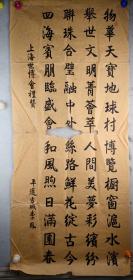 物華天寶地球村博覽櫥窗滬水濱
舉世文明薈薈萃人間美夢彩繽紛
聯珠合璧融中外絲路鮮花綻古今
四海賓朋臨盛會和風煦日滿園春
上海世博會禮贊
平遙古城李